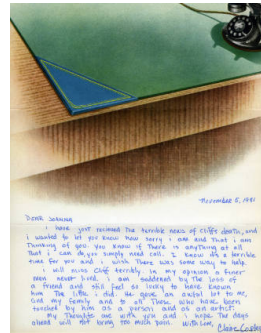 November 5, 1991
Dear Joanna
I have just received the terrible news of Cliff's death, and
I wanted to let you know how sorry I am and that I am
thinking of you. You know if there is anything at all
that I can do, you simply need call. I know it's a terrible
time for you and I wish there was some way to help.
I will miss Cliff terribly, in my opinion a finer
man never lived. I am saddened by the loss of
a friend and still feel so lucky to have known
him the little I did. He gave an awful lot to me,
and my family and to all those who have been
touched by him as a person and as an artist.
My thoughts are with you and I hope the days
ahead will not bring too much pain. With Love,
Claire